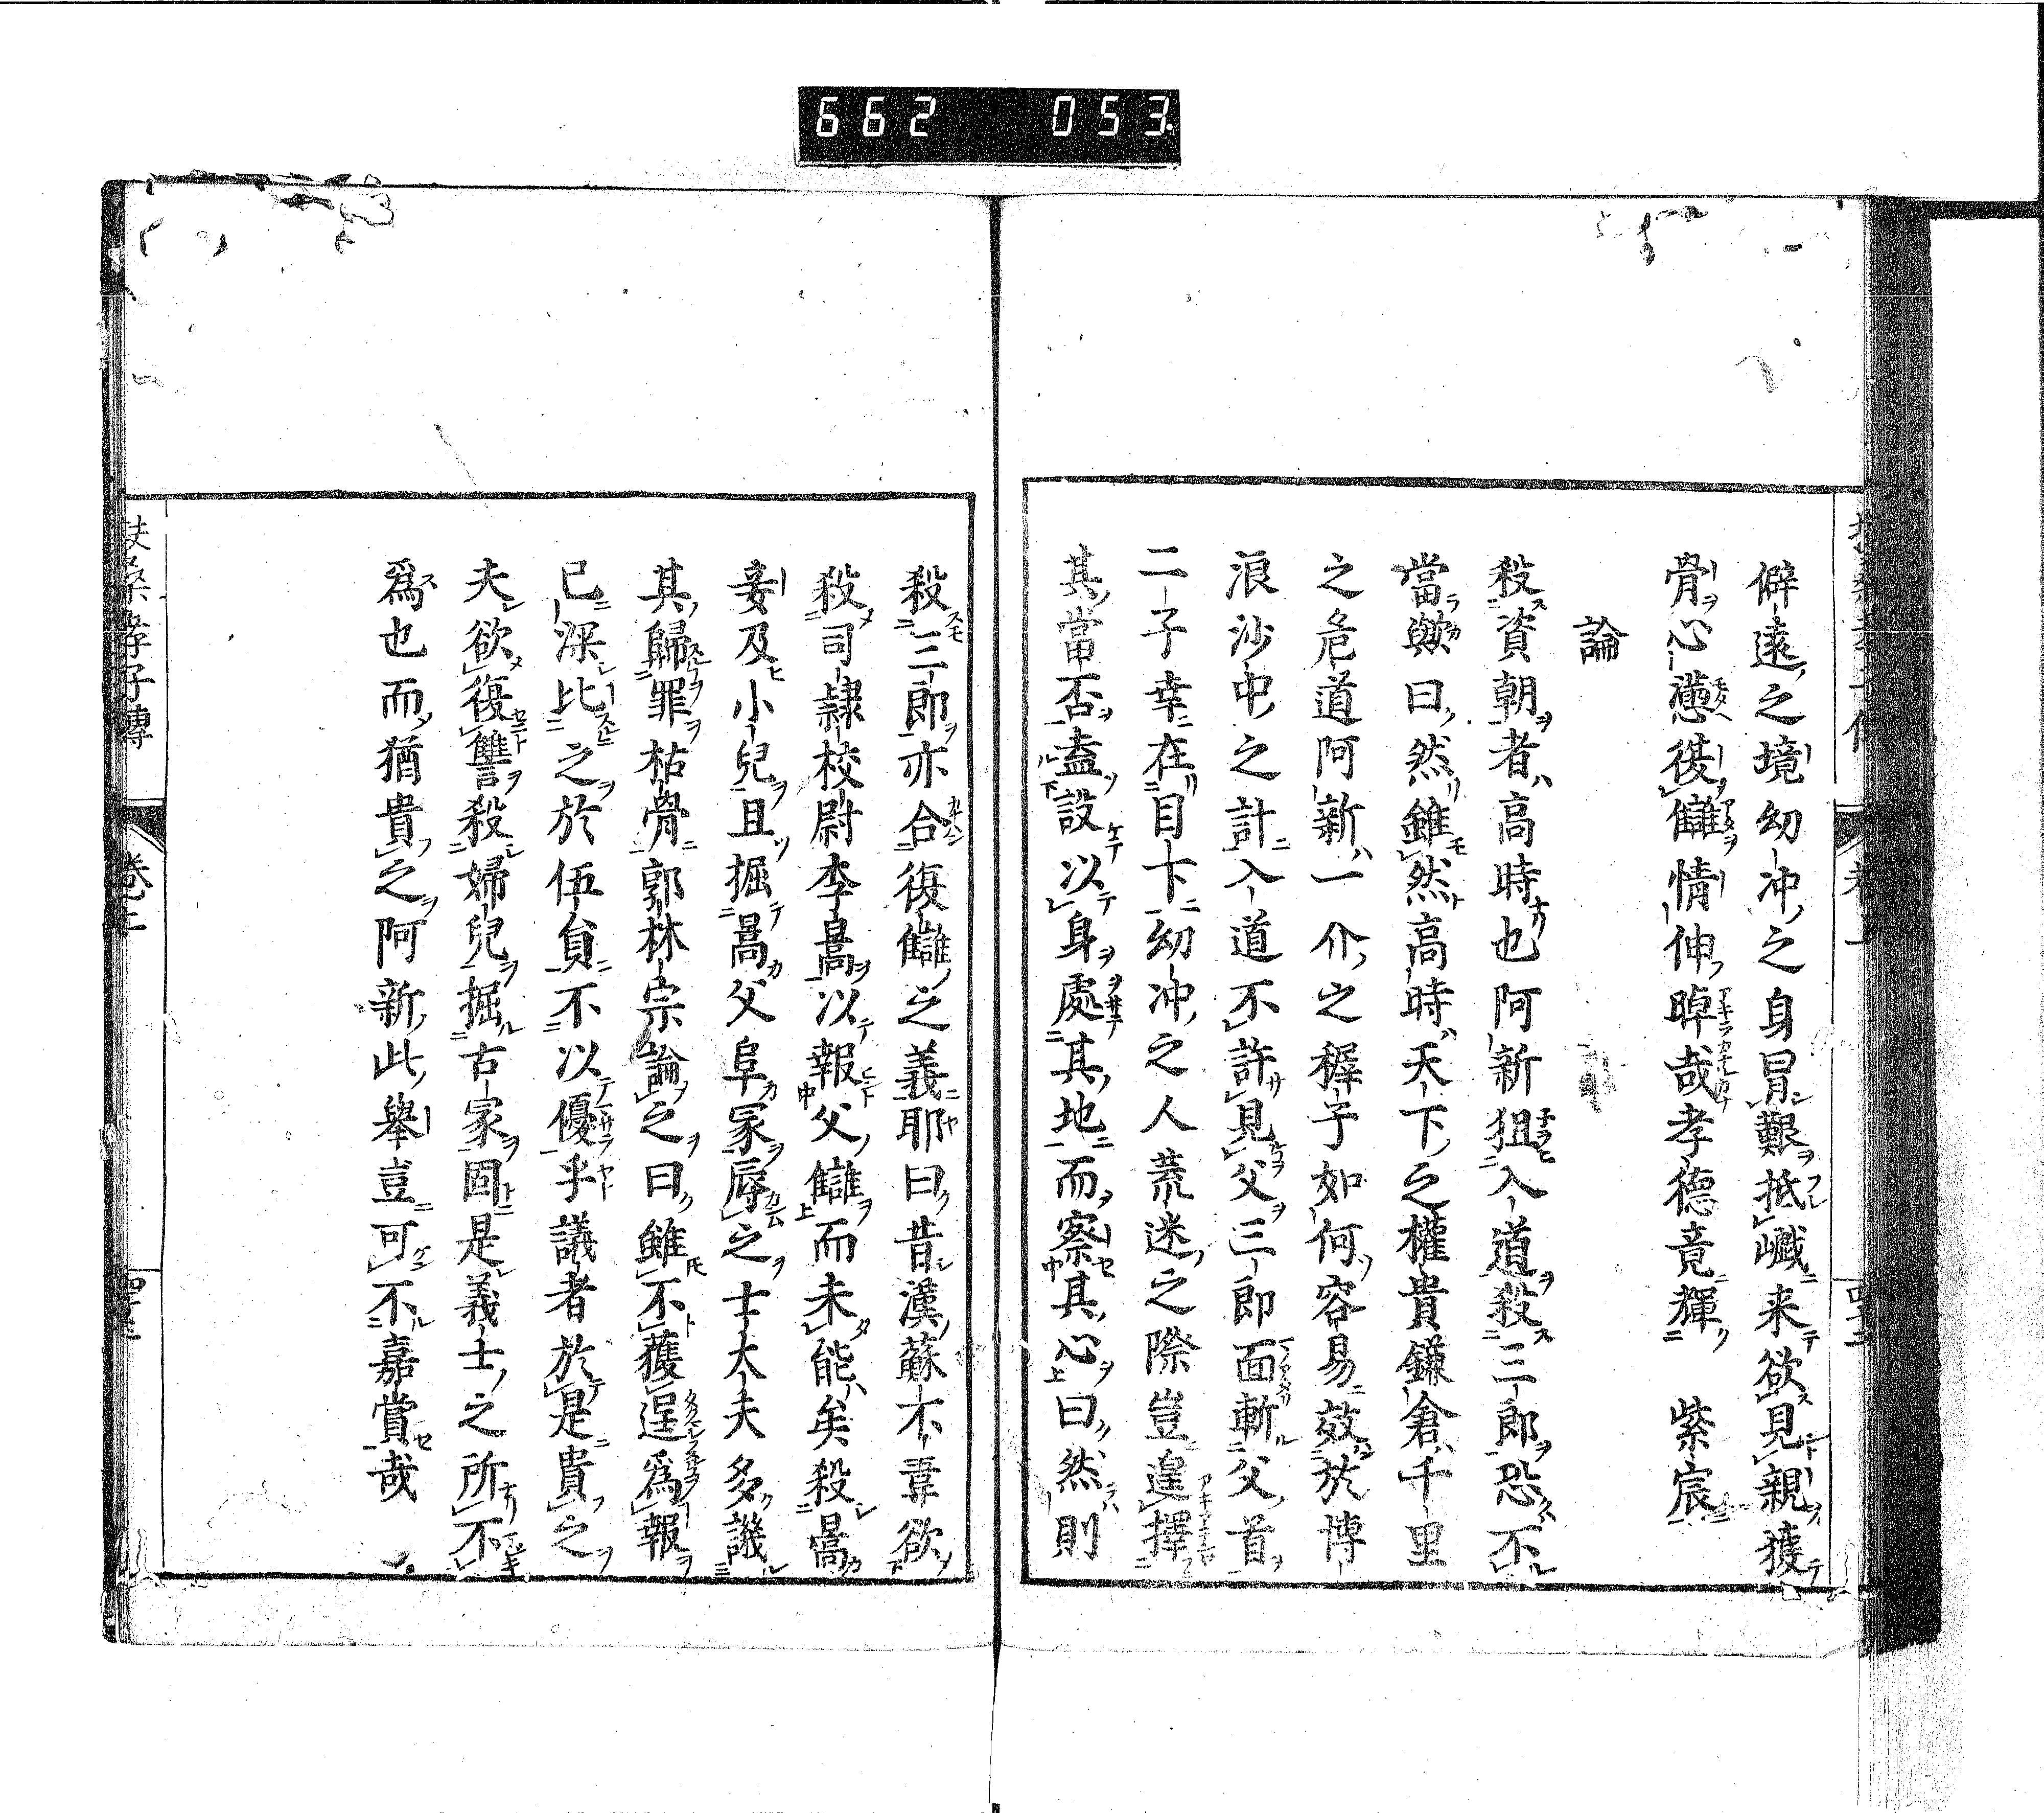 662 053
僻遠之境幼冲之身冒艱抵巇来欲見親獲
骨心懣復讎情伸晫哉孝徳竟輝紫宸
論
殺資朝者高時也阿新狙入道殺三郎恐不
當歟曰然雖然高時天下之權貴鎌倉千里
之危道阿新一介之稺子如何容易效於博
浪沙中之計入道不許見父三郎面斬父首
二子幸在目下幼冲之人荒迷之際豈遑擇
其當否盍設以身處其地而察其心曰然則
殺三郎亦合復讎之義耶曰昔漢蘇不韋欲
殺司隷校尉李暠以報父讎而未能矣殺暠
妾及小兒且掘暠父阜冢辱之士大夫多譏
其歸罪枯骨郭林宗論之曰雖不獲逞爲報
已深比之於伍員不以優乎議者於是貴之
夫欲復讐殺婦兒掘古冢固是義士之所不
爲也而猶貴之阿新此舉豈可不嘉賞哉
扶桑孝子傳 卷上